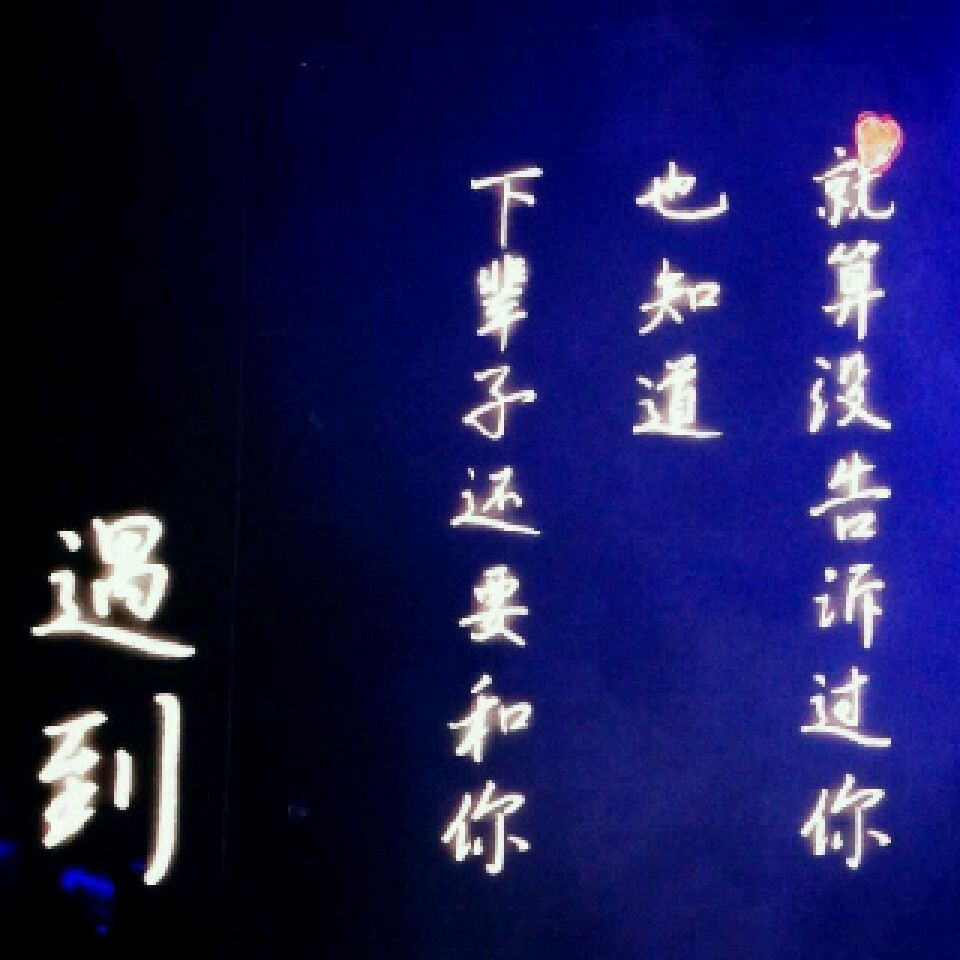 就算没告诉过你
也知道
下辈子还要和你
遇到